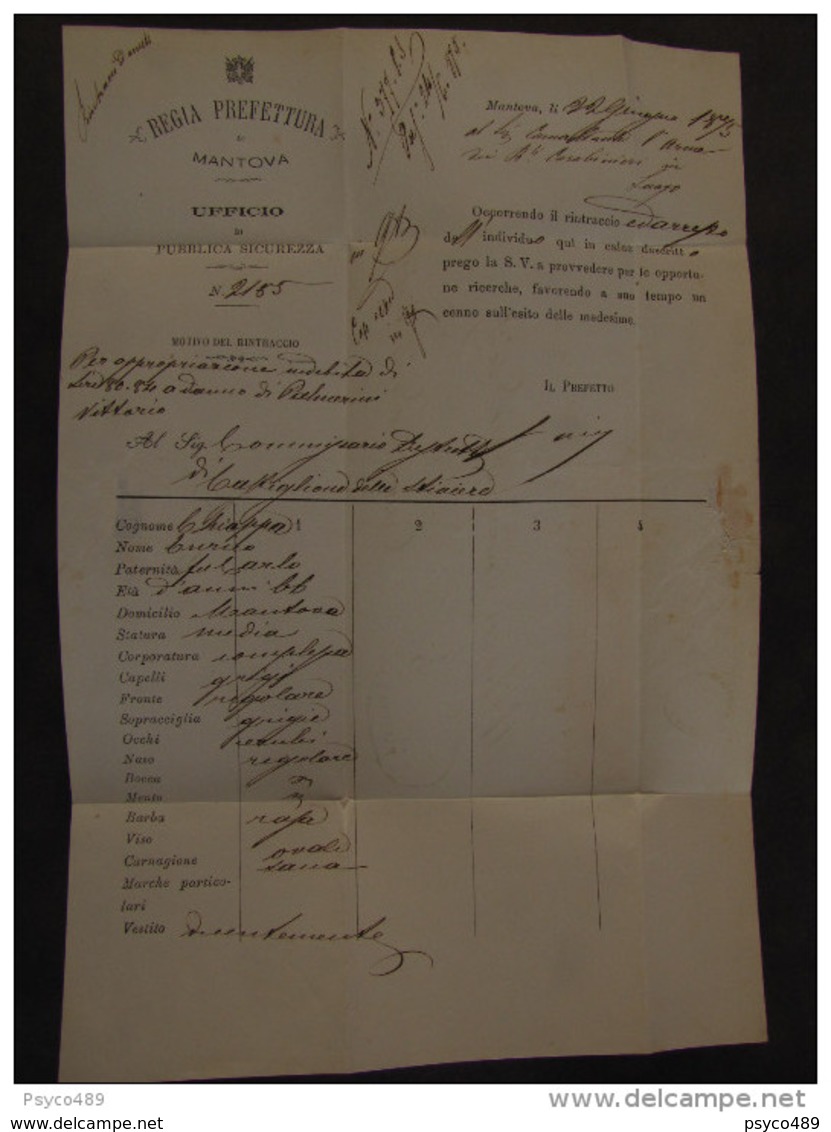 REGIA PREFETTURA
DI
MANTOVA
UFFICIO
DI
PUBBLICA SICUREZZA
N. 2185
MOTIVO DEL RINTRACCIO
Per appropriazione indebita di
Lire 80.84 a danno di
Vittorio
Mantova, li 22 Giugno 1875
al Sig. Comandante l'Arma
dei R.li Carabinieri in
Luogo
Occorrendo il rintraccio ed arresto
dell individuo qui in calce descritto
prego la S. V. a provvedere per le opportu-
ne ricerche, favorendo a suo tempo un
cenno sull'esito delle medesime.
IL PREFETTO
Al Sig. Commissario Distrett
di Castiglione delle Stiviere
Cognome Chiappa 1 2 3 4
Nome Enrico
Paternità fu Carlo
Età d'anni 66
Domicilio Mantova
Statura media
Corporatura complessa
Capelli grigi
Fronte regolare
Sopracciglia grigie
Occhi
Naso regolare
Bocca "
Mento "
Barba rasa
Viso ovale
Carnagione sana
Marche partico-
lari
Vestito decentemente
Psyco489
delcampe.net
psyco489.com
psyco489